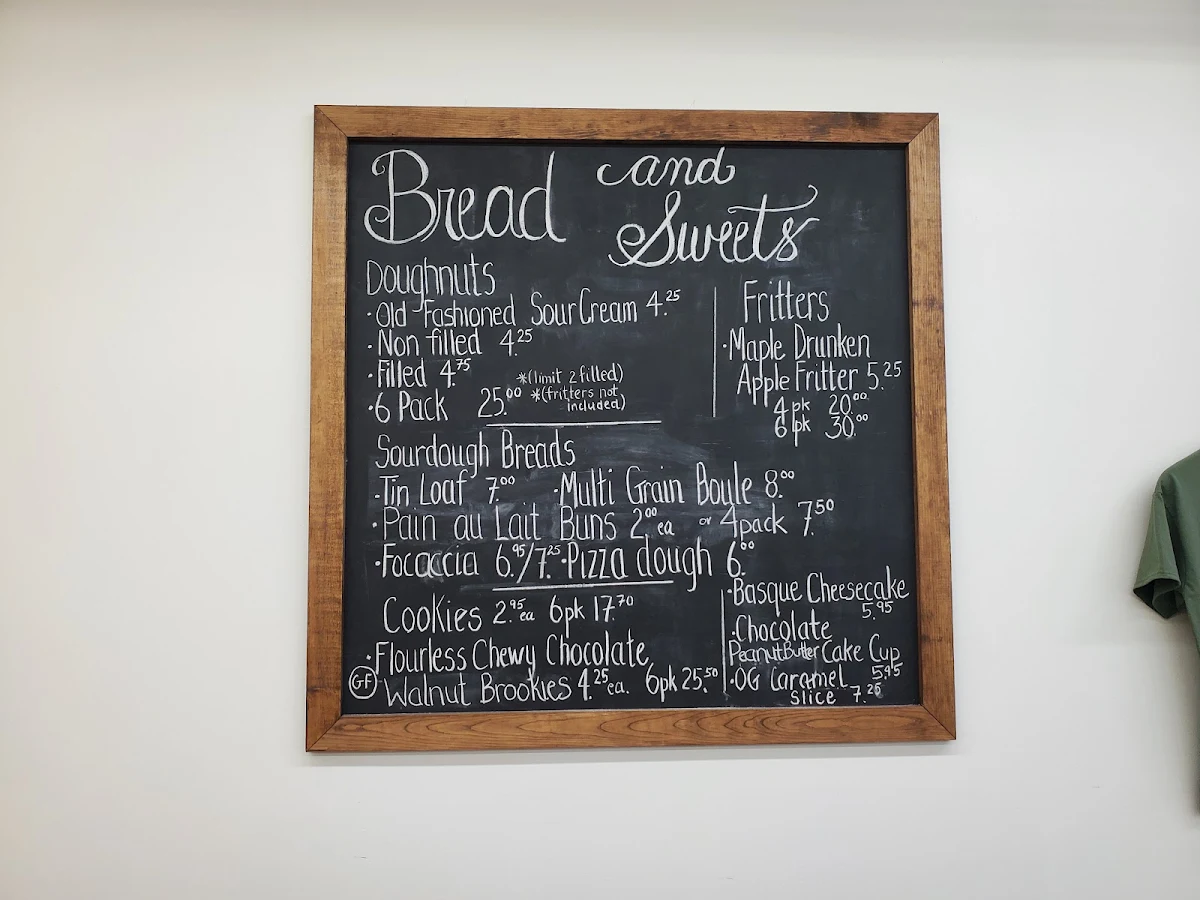 Bread and Sweets
Doughnuts
·Old Fashioned Sour Cream 4.25
·Non filled 4.25
·Filled 4.75
*(limit 2 filled)
·6 Pack 25.00
*(fritters not
included)
Fritters
·Maple Drunken
Apple Fritter 5.25
4 pk 20.00
6 pk 30.00
Sourdough Breads
·Tin Loaf 7.00 ·Multi Grain Boule 8.00
·Pain au Lait Buns 2.00 ea or 4pack 7.50
·Focaccia 6.95/7.25 ·Pizza dough 6.00
Cookies 2.95 ea 6pk 17.70
·Flourless Chewy Chocolate
GF Walnut Brookies 4.25 ea. 6pk 25.50
·Basque Cheesecake
5.95
·Chocolate
Peanut Butter Cake Cup
5.95
·OG Caramel
slice 7.25